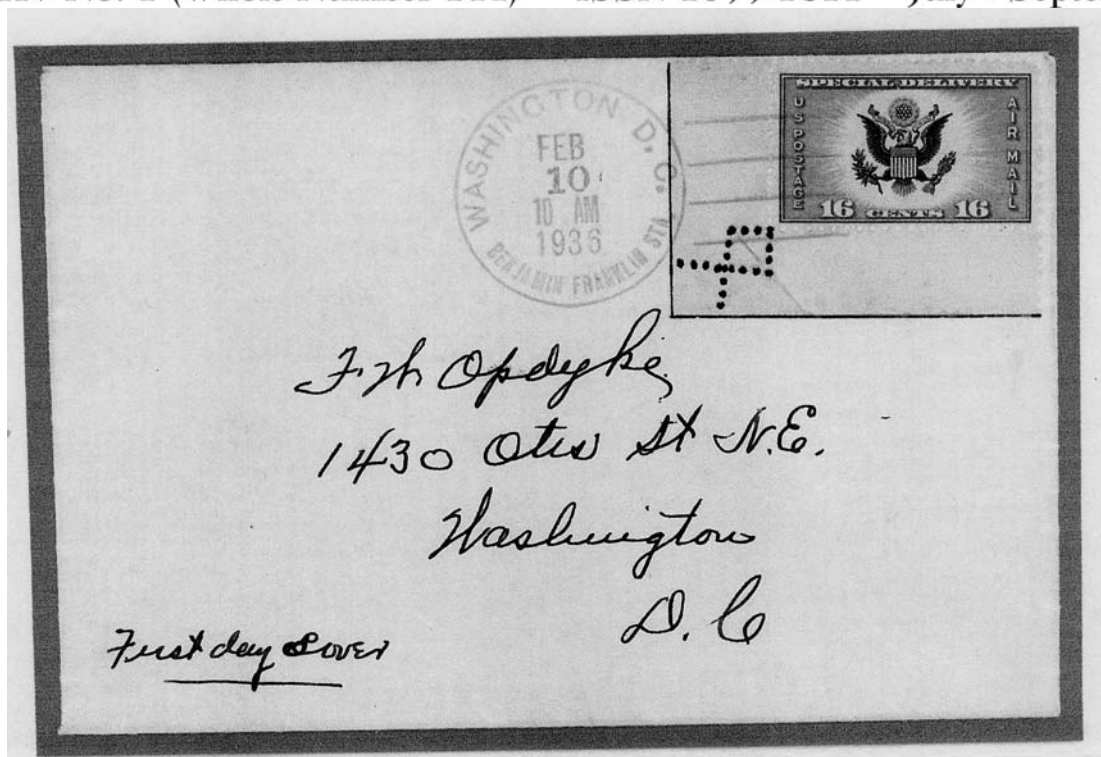 No. (Whole Number ISSN July - Septe
WASHINGTON D.C.
FEB
10
10 AM
1936
BENJAMIN FRANKLIN STA
SPECIAL DELIVERY
US POSTAGE
AIR MAIL
16 CENTS 16
Opdyke
1430 Otis St N.E.
Washington
D. C
First day Cover